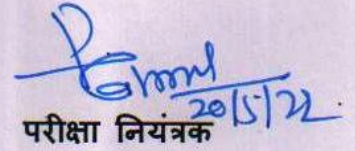 20/5/22
परीक्षा नियंत्रक